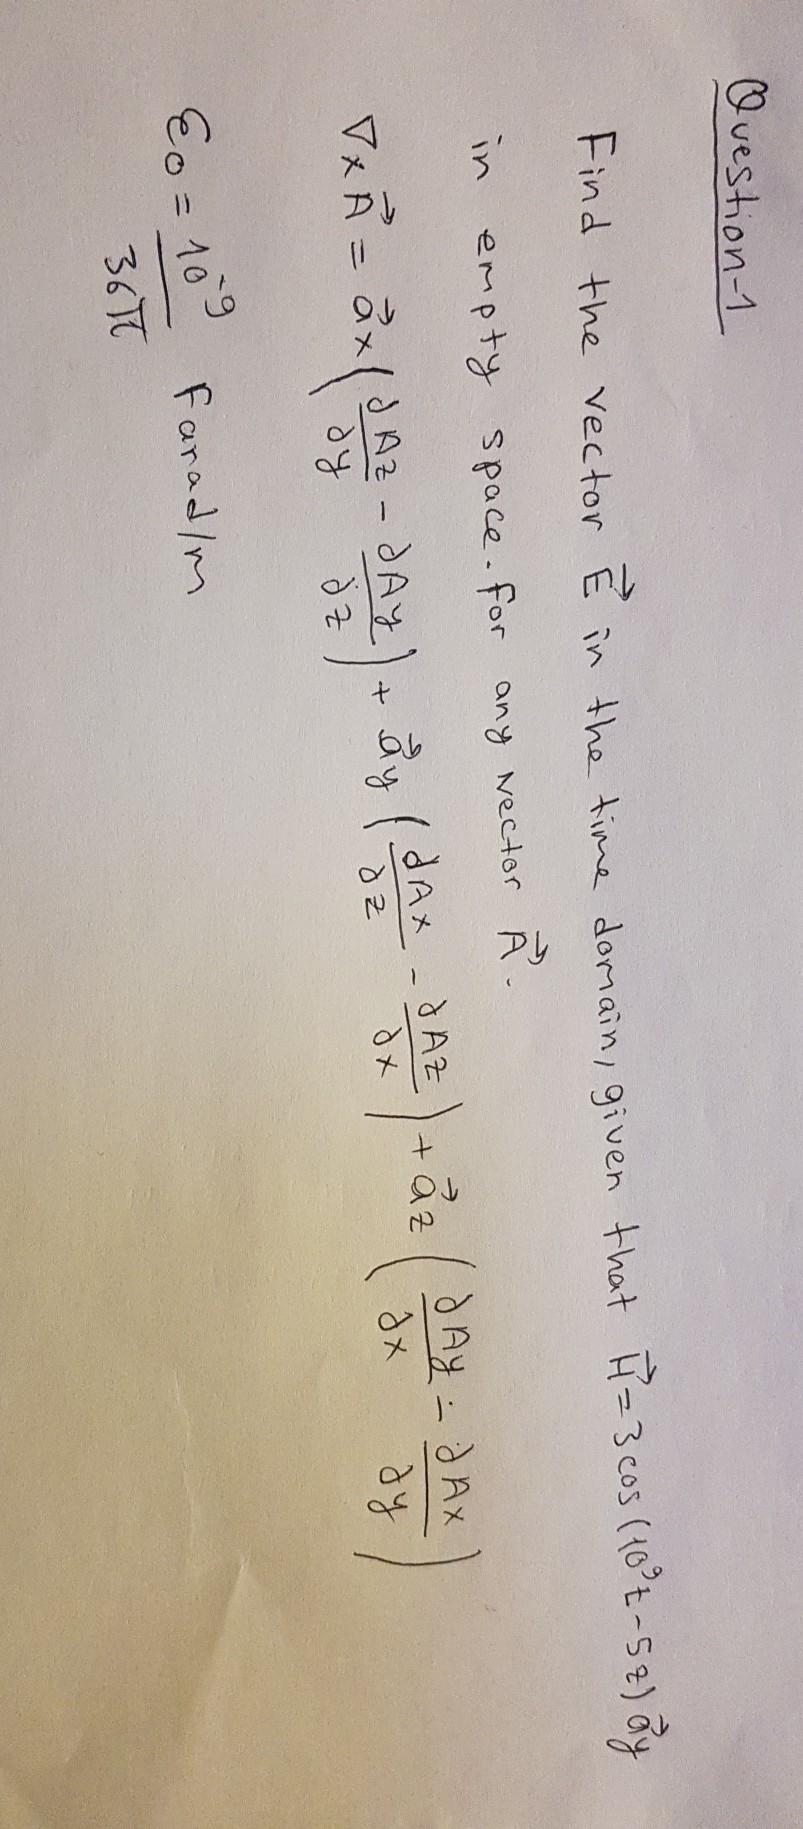 Question-1
Find the vector E⃗ in the time domain, given that H⃗ = 3cos(10⁹t - 5z) a⃗y
in empty space. for any vector A⃗.
∇ x A⃗ = a⃗x (∂Az/∂y - ∂Ay/∂z) + a⃗y (∂Ax/∂z - ∂Az/∂x) + a⃗z (∂Ay/∂x - ∂Ax/∂y)
ε0 = 10⁻⁹/36π Farad/m